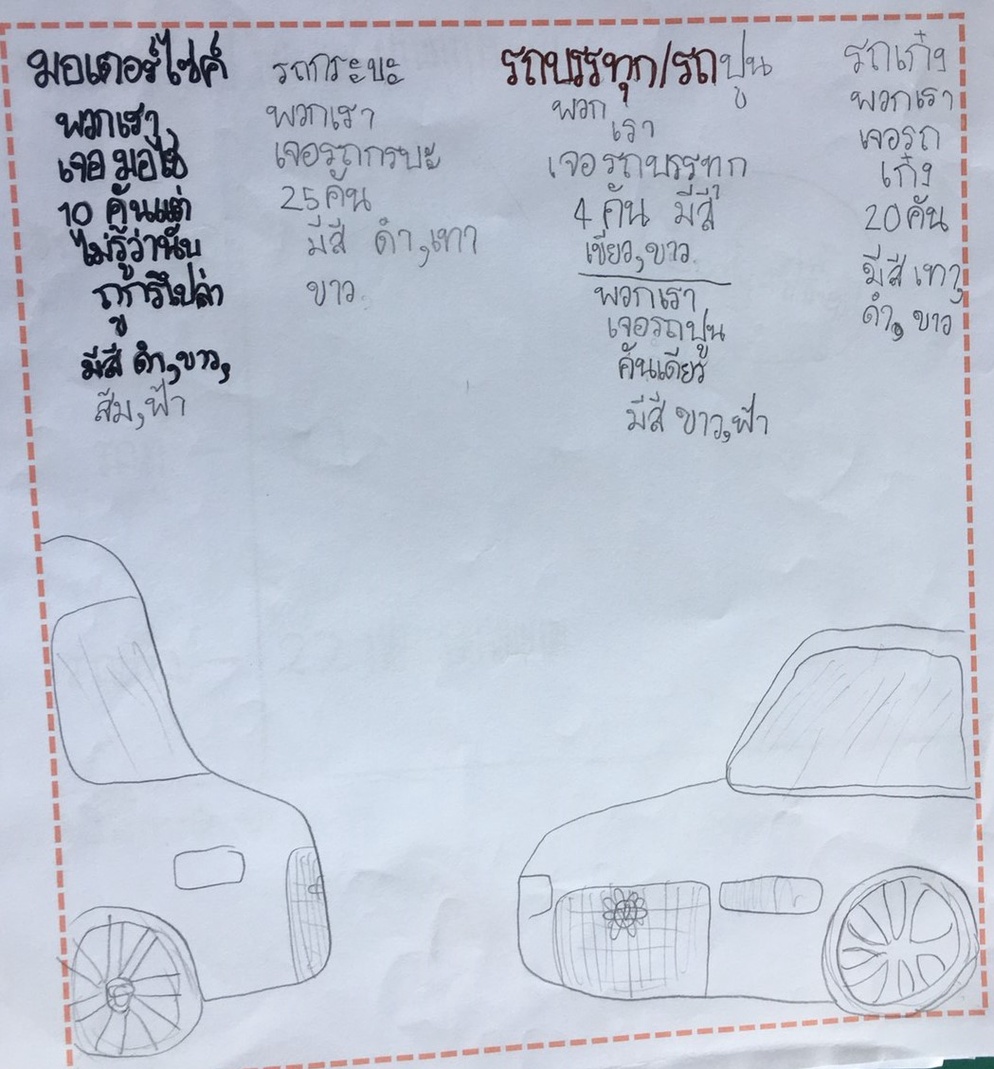 มอเตอร์ไซค์
พวกเรา
เจอ มอไซ
10 คันแต่
ไม่รู้ว่านับ
ถูกรึเปล่า
มีสี ดำ,ขาว,
ส้ม,ฟ้า
รถกระบะ
พวกเรา
เจอรถกระบะ
25 คัน
มีสี ดำ,เทา
ขาว
รถบรรทุก/รถปูน
พวก
เรา
เจอรถบรรทุก
4 คัน มีสี
เขียว,ขาว
พวกเรา
เจอรถปูน
คันเดียว
มีสี ขาว,ฟ้า
รถเก๋ง
พวกเรา
เจอรถ
เก๋ง
20 คัน
มีสี เทา,
ดำ, ขาว